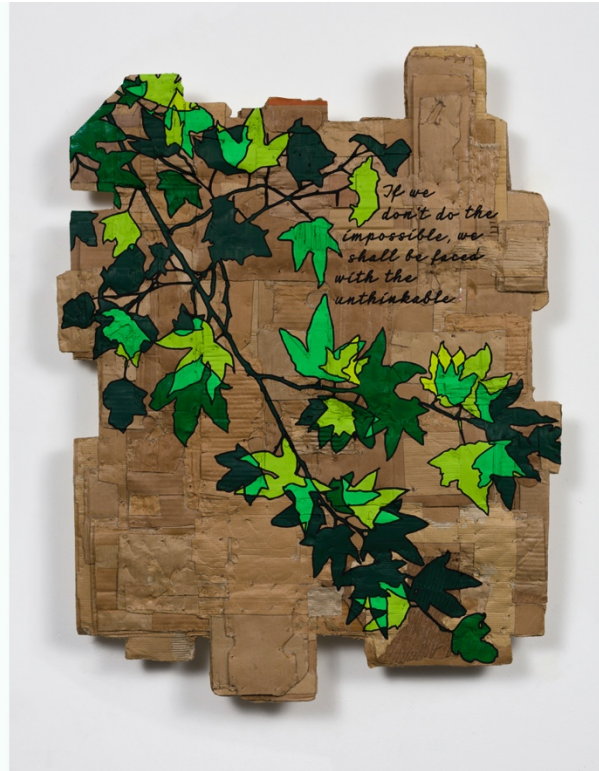 If we
don't do the
impossible, we
shall be faced
with the
unthinkable